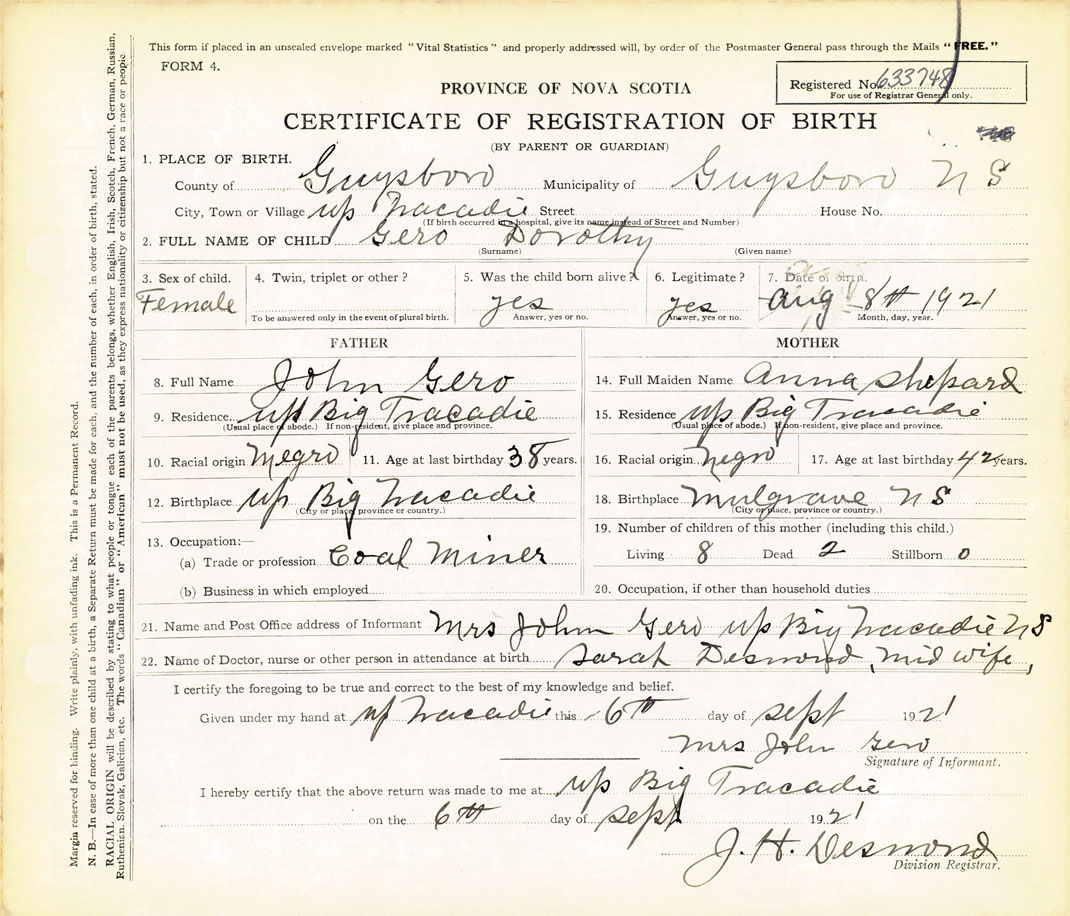 This form if placed in an unsealed envelope marked "Vital Statistics" and properly addressed will, by order of the Postmaster General pass through the Mails "FREE."
FORM 4.
Registered No. 633748
For use of Registrar General only.
PROVINCE OF NOVA SCOTIA
CERTIFICATE OF REGISTRATION OF BIRTH
(BY PARENT OR GUARDIAN)
1. PLACE OF BIRTH.
County of Guysboro Municipality of Guysboro N S
City, Town or Village up Tracadie Street House No.
(If birth occurred in a hospital, give its name instead of Street and Number)
2. FULL NAME OF CHILD Gero Dorothy
(Surname) (Given name)
3. Sex of child. 4. Twin, triplet or other? 5. Was the child born alive? 6. Legitimate? 7. Date of birth.
Female yes yes Aug 8th 1921
To be answered only in the event of plural birth. Answer, yes or no. Answer, yes or no. Month, day, year.
FATHER
8. Full Name John Gero
9. Residence up Big Tracadie
(Usual place of abode.) If non-resident, give place and province.
10. Racial origin Negro 11. Age at last birthday 38 years.
12. Birthplace up Big Tracadie
(City or place, province or country.)
13. Occupation:—
(a) Trade or profession Coal Miner
(b) Business in which employed
MOTHER
14. Full Maiden Name Anna Shepard
15. Residence up Big Tracadie
(Usual place of abode.) If non-resident, give place and province.
16. Racial origin Negro 17. Age at last birthday 42 years.
18. Birthplace Mulgrave N S
(City or place, province or country.)
19. Number of children of this mother (including this child.)
Living 8 Dead 2 Stillborn 0
20. Occupation, if other than household duties
21. Name and Post Office address of Informant Mrs John Gero up Big Tracadie N S
22. Name of Doctor, nurse or other person in attendance at birth Sarah Desmond, mid wife,
I certify the foregoing to be true and correct to the best of my knowledge and belief.
Given under my hand at up Tracadie this 6th day of sept 1921
Mrs John Gero
Signature of Informant.
I hereby certify that the above return was made to me at up Big Tracadie
on the 6th day of sept 1921
J. H. Desmond
Division Registrar.
Margin reserved for binding. Write plainly, with unfading ink. This is a Permanent Record.
N. B.—In case of more than one child at a birth, a Separate Return must be made for each, and the number of each, in order of birth, stated.
RACIAL ORIGIN will be described by stating to what people or tongue each of the parents belongs, whether English, Irish, Scotch, French, German, Russian,
Ruthenian, Slovak, Galician, etc. The words "Canadian" or "American" must not be used, as they express nationality or citizenship but not a race or people